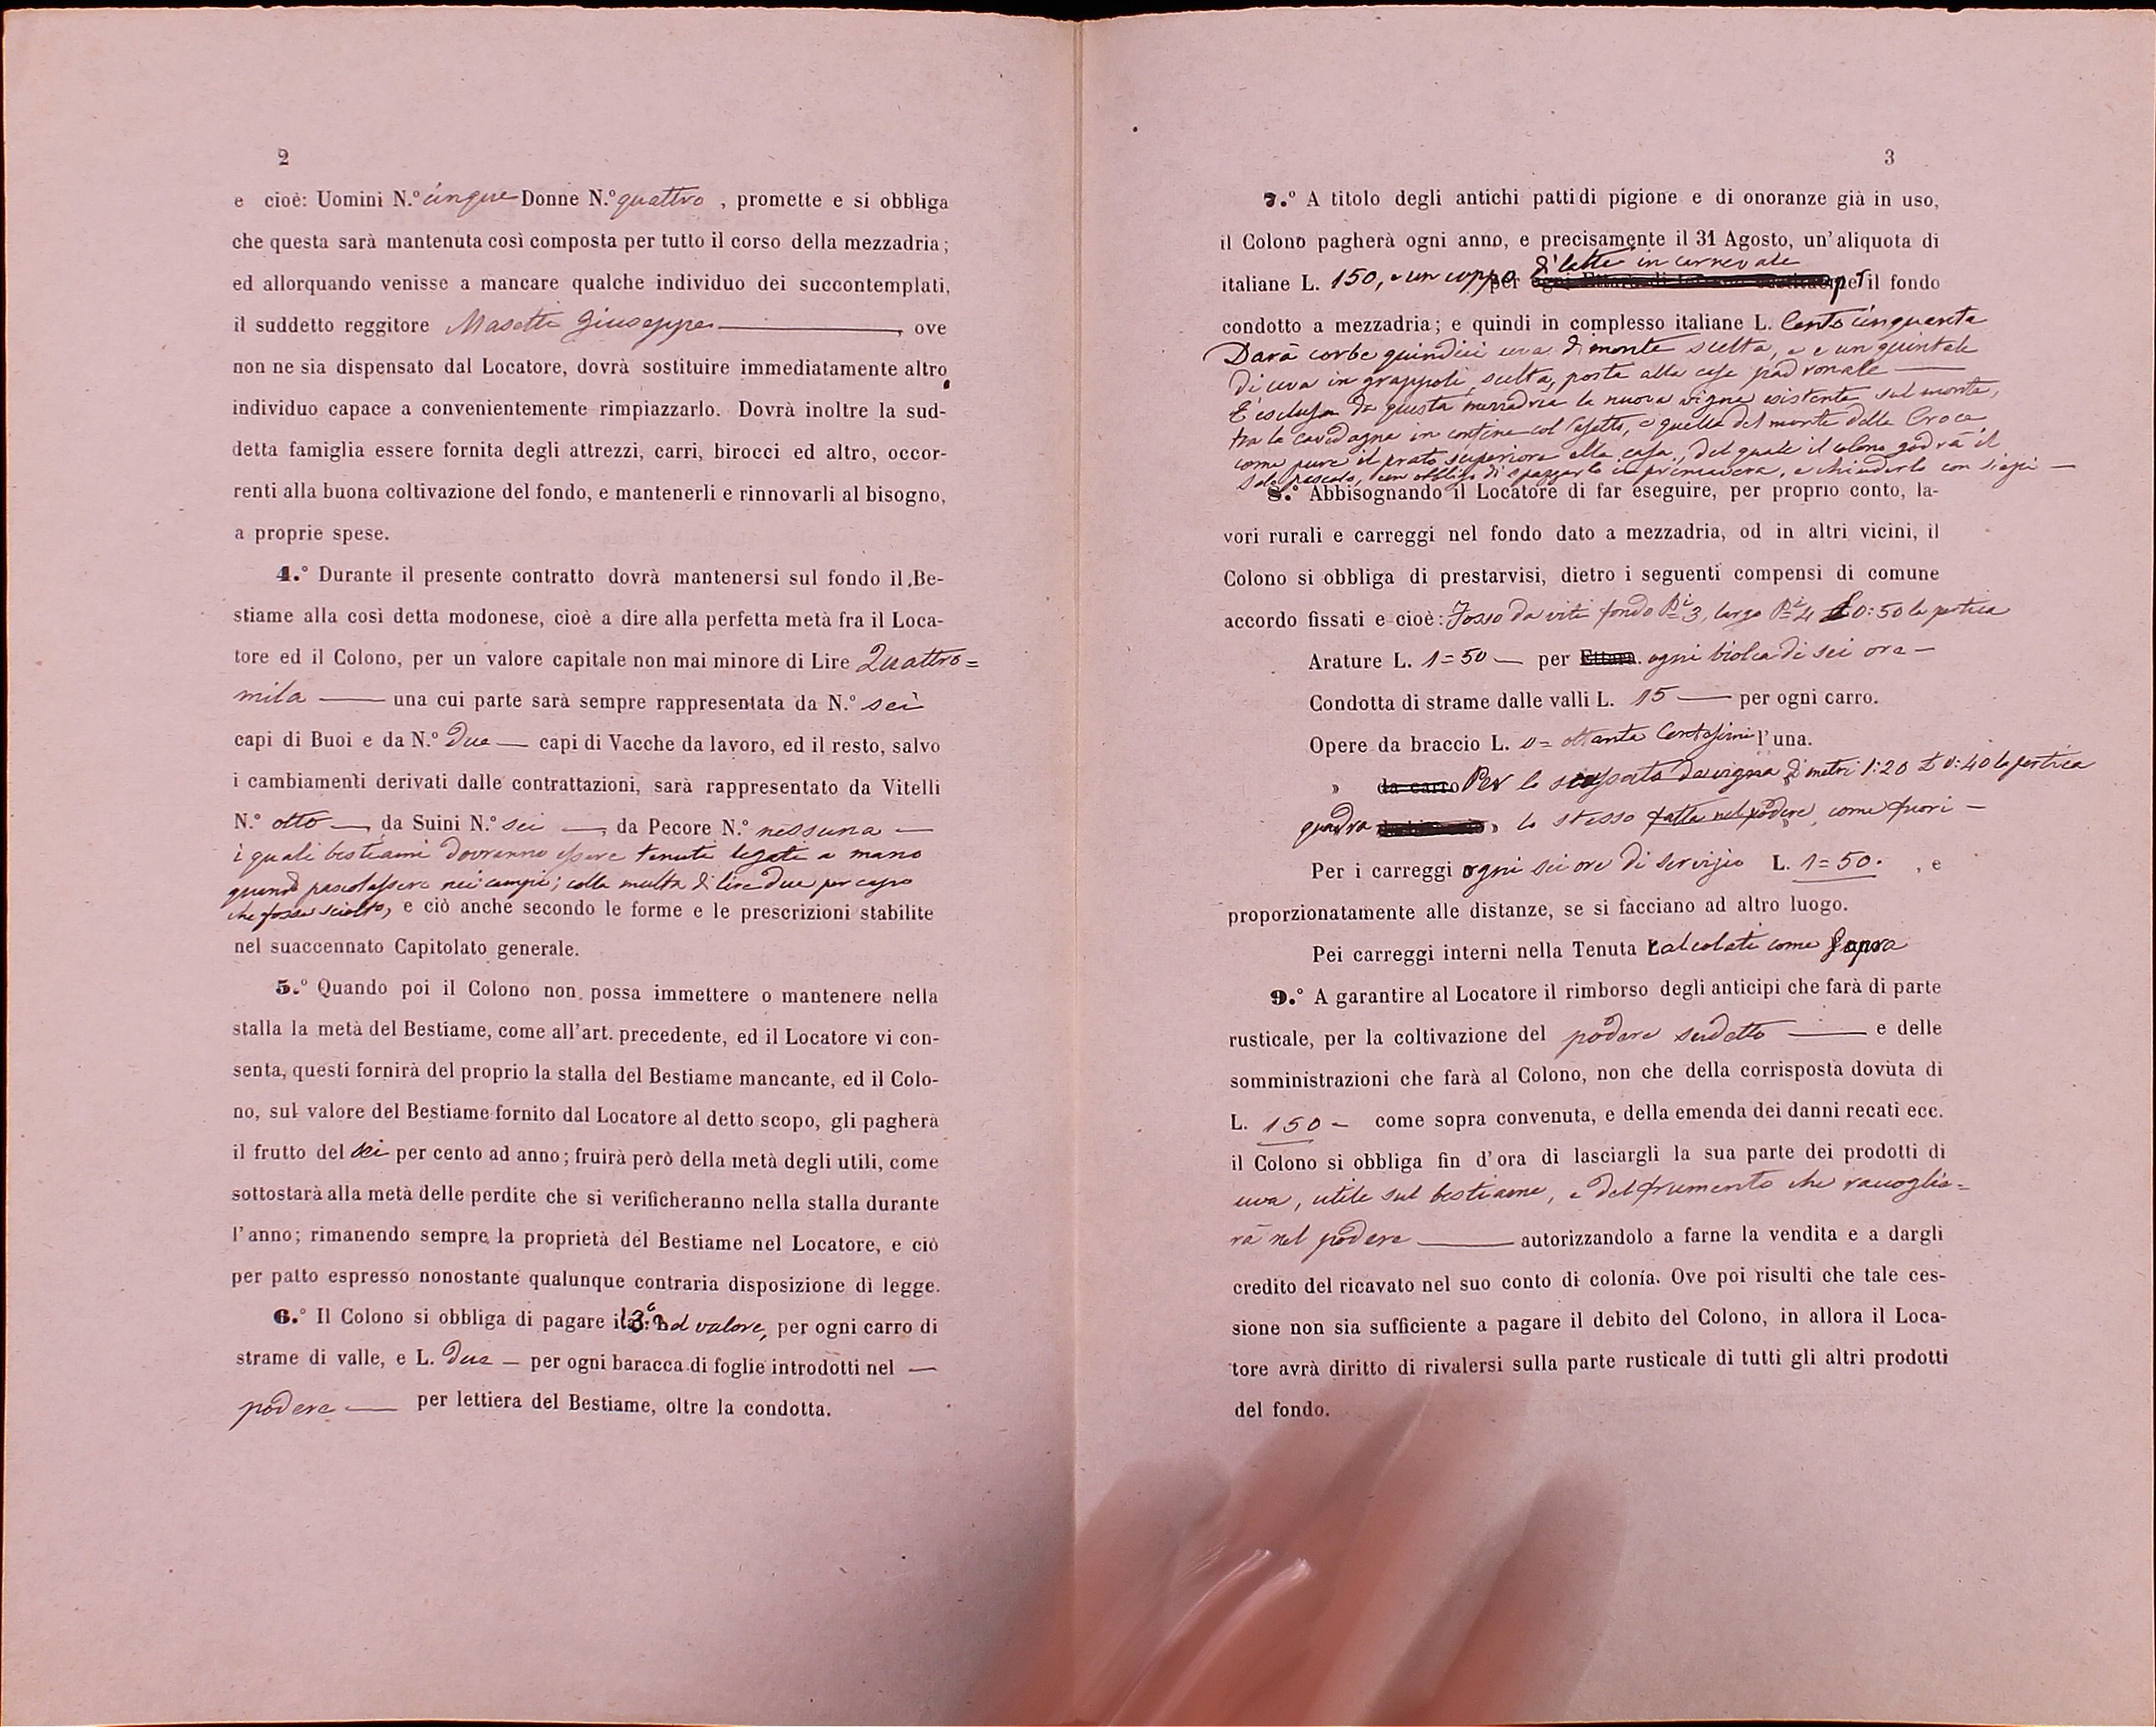 2
e cioè: Uomini N.º cinque Donne N.º quattro , promette e si obbliga
che questa sarà mantenuta così composta per tutto il corso della mezzadria;
ed allorquando venisse a mancare qualche individuo dei succontemplati,
il suddetto reggitore Masetti Giuseppe , ove
non ne sia dispensato dal Locatore, dovrà sostituire immediatamente altro
individuo capace a convenientemente rimpiazzarlo. Dovrà inoltre la sud-
detta famiglia essere fornita degli attrezzi, carri, birocci ed altro, occor-
renti alla buona coltivazione del fondo, e mantenerli e rinnovarli al bisogno,
a proprie spese.
4.º Durante il presente contratto dovrà mantenersi sul fondo il Be-
stiame alla così detta modonese, cioè a dire alla perfetta metà fra il Loca-
tore ed il Colono, per un valore capitale non mai minore di Lire Quattro=
mila — una cui parte sarà sempre rappresentata da N.º sei
capi di Buoi e da N.º due — capi di Vacche da lavoro, ed il resto, salvo
i cambiamenti derivati dalle contrattazioni, sarà rappresentato da Vitelli
N.º otto —, da Suini N.º sei —, da Pecore N.º nessuna —
i quali bestiami dovranno essere tenuti legati a mano
quando pascolassero nei campi; colla multa di lire due per capo
che fosse sciolto, e ciò anche secondo le forme e le prescrizioni stabilite
nel suaccennato Capitolato generale.
5.º Quando poi il Colono non possa immettere o mantenere nella
stalla la metà del Bestiame, come all'art. precedente, ed il Locatore vi con-
senta, questi fornirà del proprio la stalla del Bestiame mancante, ed il Colo-
no, sul valore del Bestiame fornito dal Locatore al detto scopo, gli pagherà
il frutto del sei per cento ad anno; fruirà però della metà degli utili, come
sottostarà alla metà delle perdite che si verificheranno nella stalla durante
l'anno; rimanendo sempre la proprietà del Bestiame nel Locatore, e ciò
per patto espresso nonostante qualunque contraria disposizione di legge.
6.º Il Colono si obbliga di pagare il 3º del valore, per ogni carro di
strame di valle, e L. due — per ogni baracca di foglie introdotti nel —
podere — per lettiera del Bestiame, oltre la condotta.
3
7.º A titolo degli antichi patti di pigione e di onoranze già in uso,
il Colono pagherà ogni anno, e precisamente il 31 Agosto, un'aliquota di
di latte in carnevale
italiane L. 150, e un coppo per il fondo
condotto a mezzadria; e quindi in complesso italiane L. Cento cinquanta
Darà corbe quindici uva di monte scelta, e un quintale
di uva in grappoli scelta, posta alla casa padronale —
È esclusa da questa mezzadria la nuova vigna esistente sul monte,
tra la cavedagna in confine col , e quella del monte della Croce
come pure il prato superiore alla casa, del quale il colono godrà il
solo pascolo, con obbligo di spazzarlo in primavera, e chiuderlo con siepi —
8.º Abbisognando il Locatore di far eseguire, per proprio conto, la-
vori rurali e carreggi nel fondo dato a mezzadria, od in altri vicini, il
Colono si obbliga di prestarvisi, dietro i seguenti compensi di comune
accordo fissati e cioè: Fosso da viti fondo Pi 3, largo Pi 4 £ 0:50 la pertica
Arature L. 1=50 — per Ettara. ogni biolca di sei ore —
Condotta di strame dalle valli L. 15 — per ogni carro.
Opere da braccio L. 0= ottanta Centesimi l'una.
» da carro Per lo scassato da vigna di metri 1:20 £ 0:40 la pertica
quadra » lo stesso fatto nel podere, come fuori —
Per i carreggi ogni sei ore di servizio L. 1=50. , e
proporzionatamente alle distanze, se si facciano ad altro luogo.
Pei carreggi interni nella Tenuta calcolati come sopra
9.º A garantire al Locatore il rimborso degli anticipi che farà di parte
rusticale, per la coltivazione del podere sudetto — e delle
somministrazioni che farà al Colono, non che della corrisposta dovuta di
L. 150 — come sopra convenuta, e della emenda dei danni recati ecc.
il Colono si obbliga fin d'ora di lasciargli la sua parte dei prodotti di
uva, utile sul bestiame, e del frumento che raccoglie=
rà nel podere — autorizzandolo a farne la vendita e a dargli
credito del ricavato nel suo conto di colonía. Ove poi risulti che tale ces-
sione non sia sufficiente a pagare il debito del Colono, in allora il Loca-
tore avrà diritto di rivalersi sulla parte rusticale di tutti gli altri prodotti
del fondo.